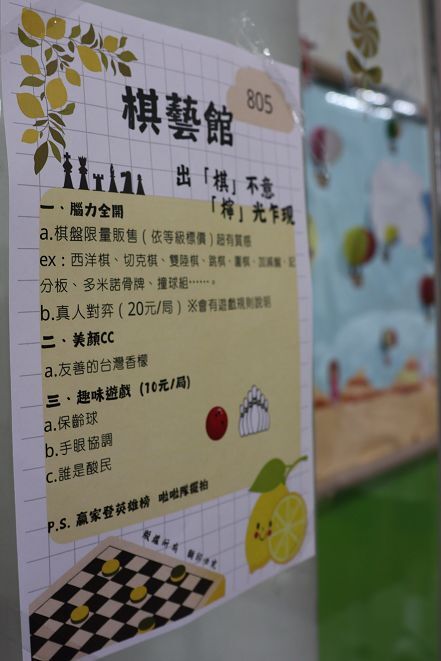 棋藝館
805
出「棋」不意
「檸」光乍現
一、腦力全開
a.棋盤限量販售（依等級標價）超有質感
ex：西洋棋、切克棋、雙陸棋、跳棋、圍棋、加減盤、記
分板、多米諾骨牌、撞球組……。
b.真人對弈（20元/局）※會有遊戲規則說明
二、美顏CC
a.友善的台灣香檬
三、趣味遊戲 (10元/局)
a.保齡球
b.手眼協調
c.誰是酸民
P.S. 贏家登英雄榜 啦啦隊擺拍